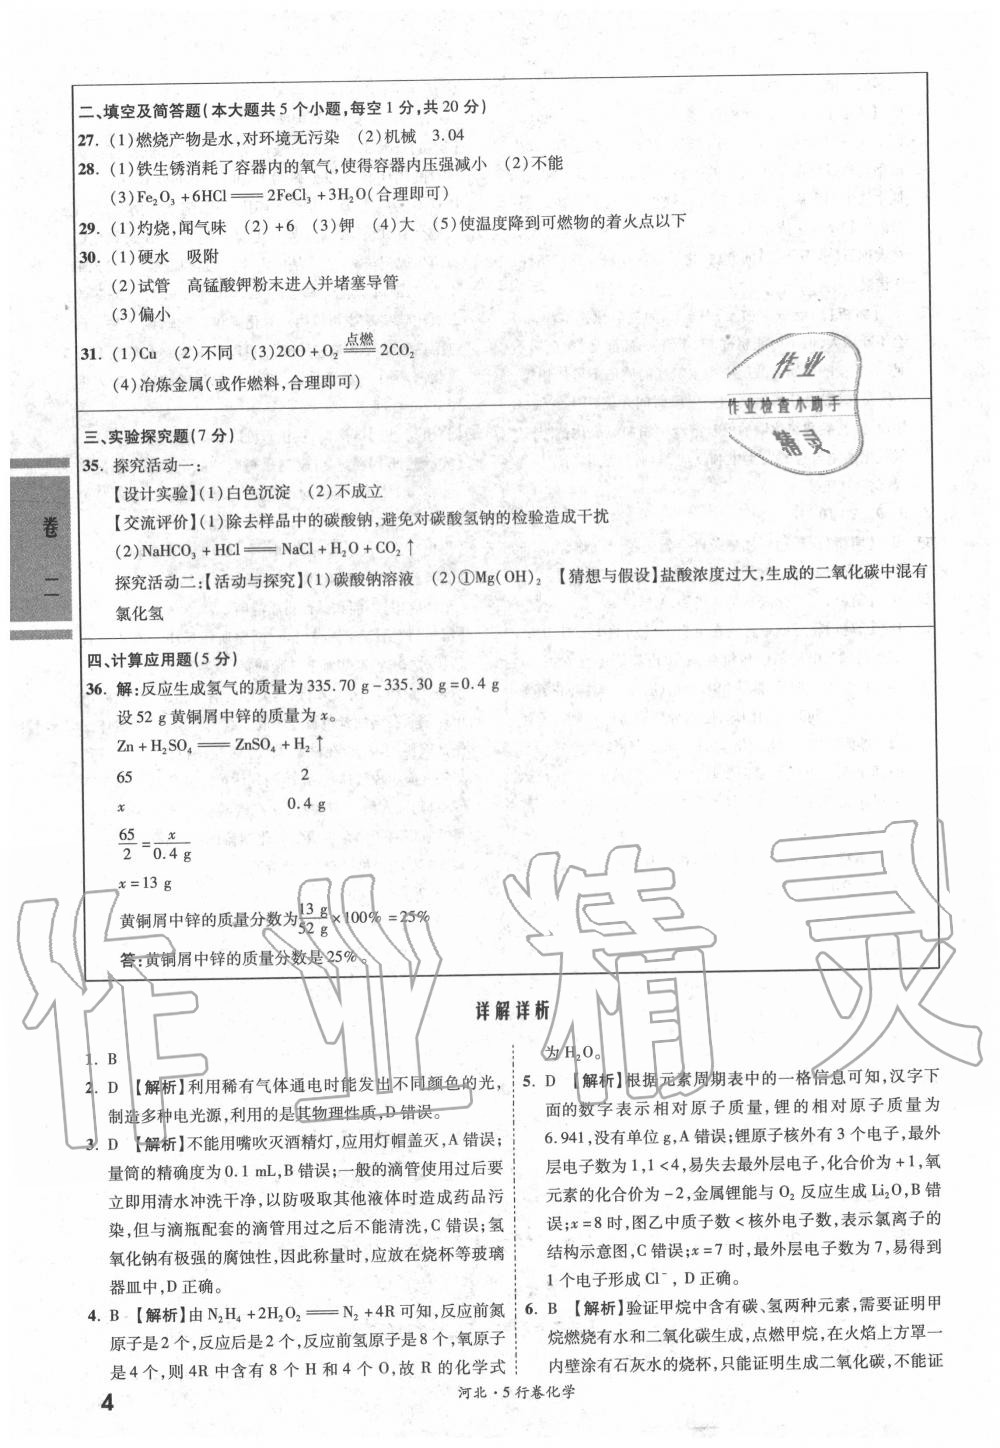 二、填空及简答题(本大题共5个小题,每空1分,共20分)
27. (1)燃烧产物是水,对环境无污染 (2)机械 3.04
28. (1)铁生锈消耗了容器内的氧气,使得容器内压强减小 (2)不能
(3)Fe₂O₃+6HCl══2FeCl₃+3H₂O(合理即可)
29. (1)灼烧,闻气味 (2)+6 (3)钾 (4)大 (5)使温度降到可燃物的着火点以下
30. (1)硬水 吸附
(2)试管 高锰酸钾粉末进入并堵塞导管
(3)偏小
31. (1)Cu (2)不同 (3)2CO+O₂ ══点燃══ 2CO₂
(4)冶炼金属(或作燃料,合理即可)
作业
作业检查小助手
精灵
三、实验探究题(7分)
35. 探究活动一:
【设计实验】(1)白色沉淀 (2)不成立
【交流评价】(1)除去样品中的碳酸钠,避免对碳酸氢钠的检验造成干扰
(2)NaHCO₃+HCl══NaCl+H₂O+CO₂↑
探究活动二:【活动与探究】(1)碳酸钠溶液 (2)①Mg(OH)₂ 【猜想与假设】盐酸浓度过大,生成的二氧化碳中混有
氯化氢
卷二
四、计算应用题(5分)
36. 解:反应生成氢气的质量为335.70 g-335.30 g=0.4 g
设52 g黄铜屑中锌的质量为x。
Zn+H₂SO₄══ZnSO₄+H₂↑
65 2
x 0.4 g
65/2=x/0.4 g
x=13 g
黄铜屑中锌的质量分数为13 g/52 g×100%=25%
答:黄铜屑中锌的质量分数是25%。
作业精灵
详解详析
1. B
2. D 【解析】利用稀有气体通电时能发出不同颜色的光,
制造多种电光源,利用的是其物理性质,D错误。
3. D 【解析】不能用嘴吹灭酒精灯,应用灯帽盖灭,A错误;
量筒的精确度为0.1 mL,B错误;一般的滴管使用过后要
立即用清水冲洗干净,以防吸取其他液体时造成药品污
染,但与滴瓶配套的滴管用过之后不能清洗,C错误;氢
氧化钠有极强的腐蚀性,因此称量时,应放在烧杯等玻璃
器皿中,D正确。
4. B 【解析】由N₂H₄+2H₂O₂══N₂+4R可知,反应前氮
原子是2个,反应后是2个,反应前氢原子是8个,氧原子
是4个,则4R中含有8个H和4个O,故R的化学式
为H₂O。
5. D 【解析】根据元素周期表中的一格信息可知,汉字下
面的数字表示相对原子质量,锂的相对原子质量为
6.941,没有单位g,A错误;锂原子核外有3个电子,最外
层电子数为1,1<4,易失去最外层电子,化合价为+1,氧
元素的化合价为-2,金属锂能与O₂反应生成Li₂O,B错
误;x=8时,图乙中质子数<核外电子数,表示氯离子的
结构示意图,C错误;x=7时,最外层电子数为7,易得到
1个电子形成Cl⁻,D正确。
6. B 【解析】验证甲烷中含有碳、氢两种元素,需要证明甲
烷燃烧有水和二氧化碳生成,点燃甲烷,在火焰上方罩一
内壁涂有石灰水的烧杯,只能证明生成二氧化碳,不能证
4
河北·5行卷化学